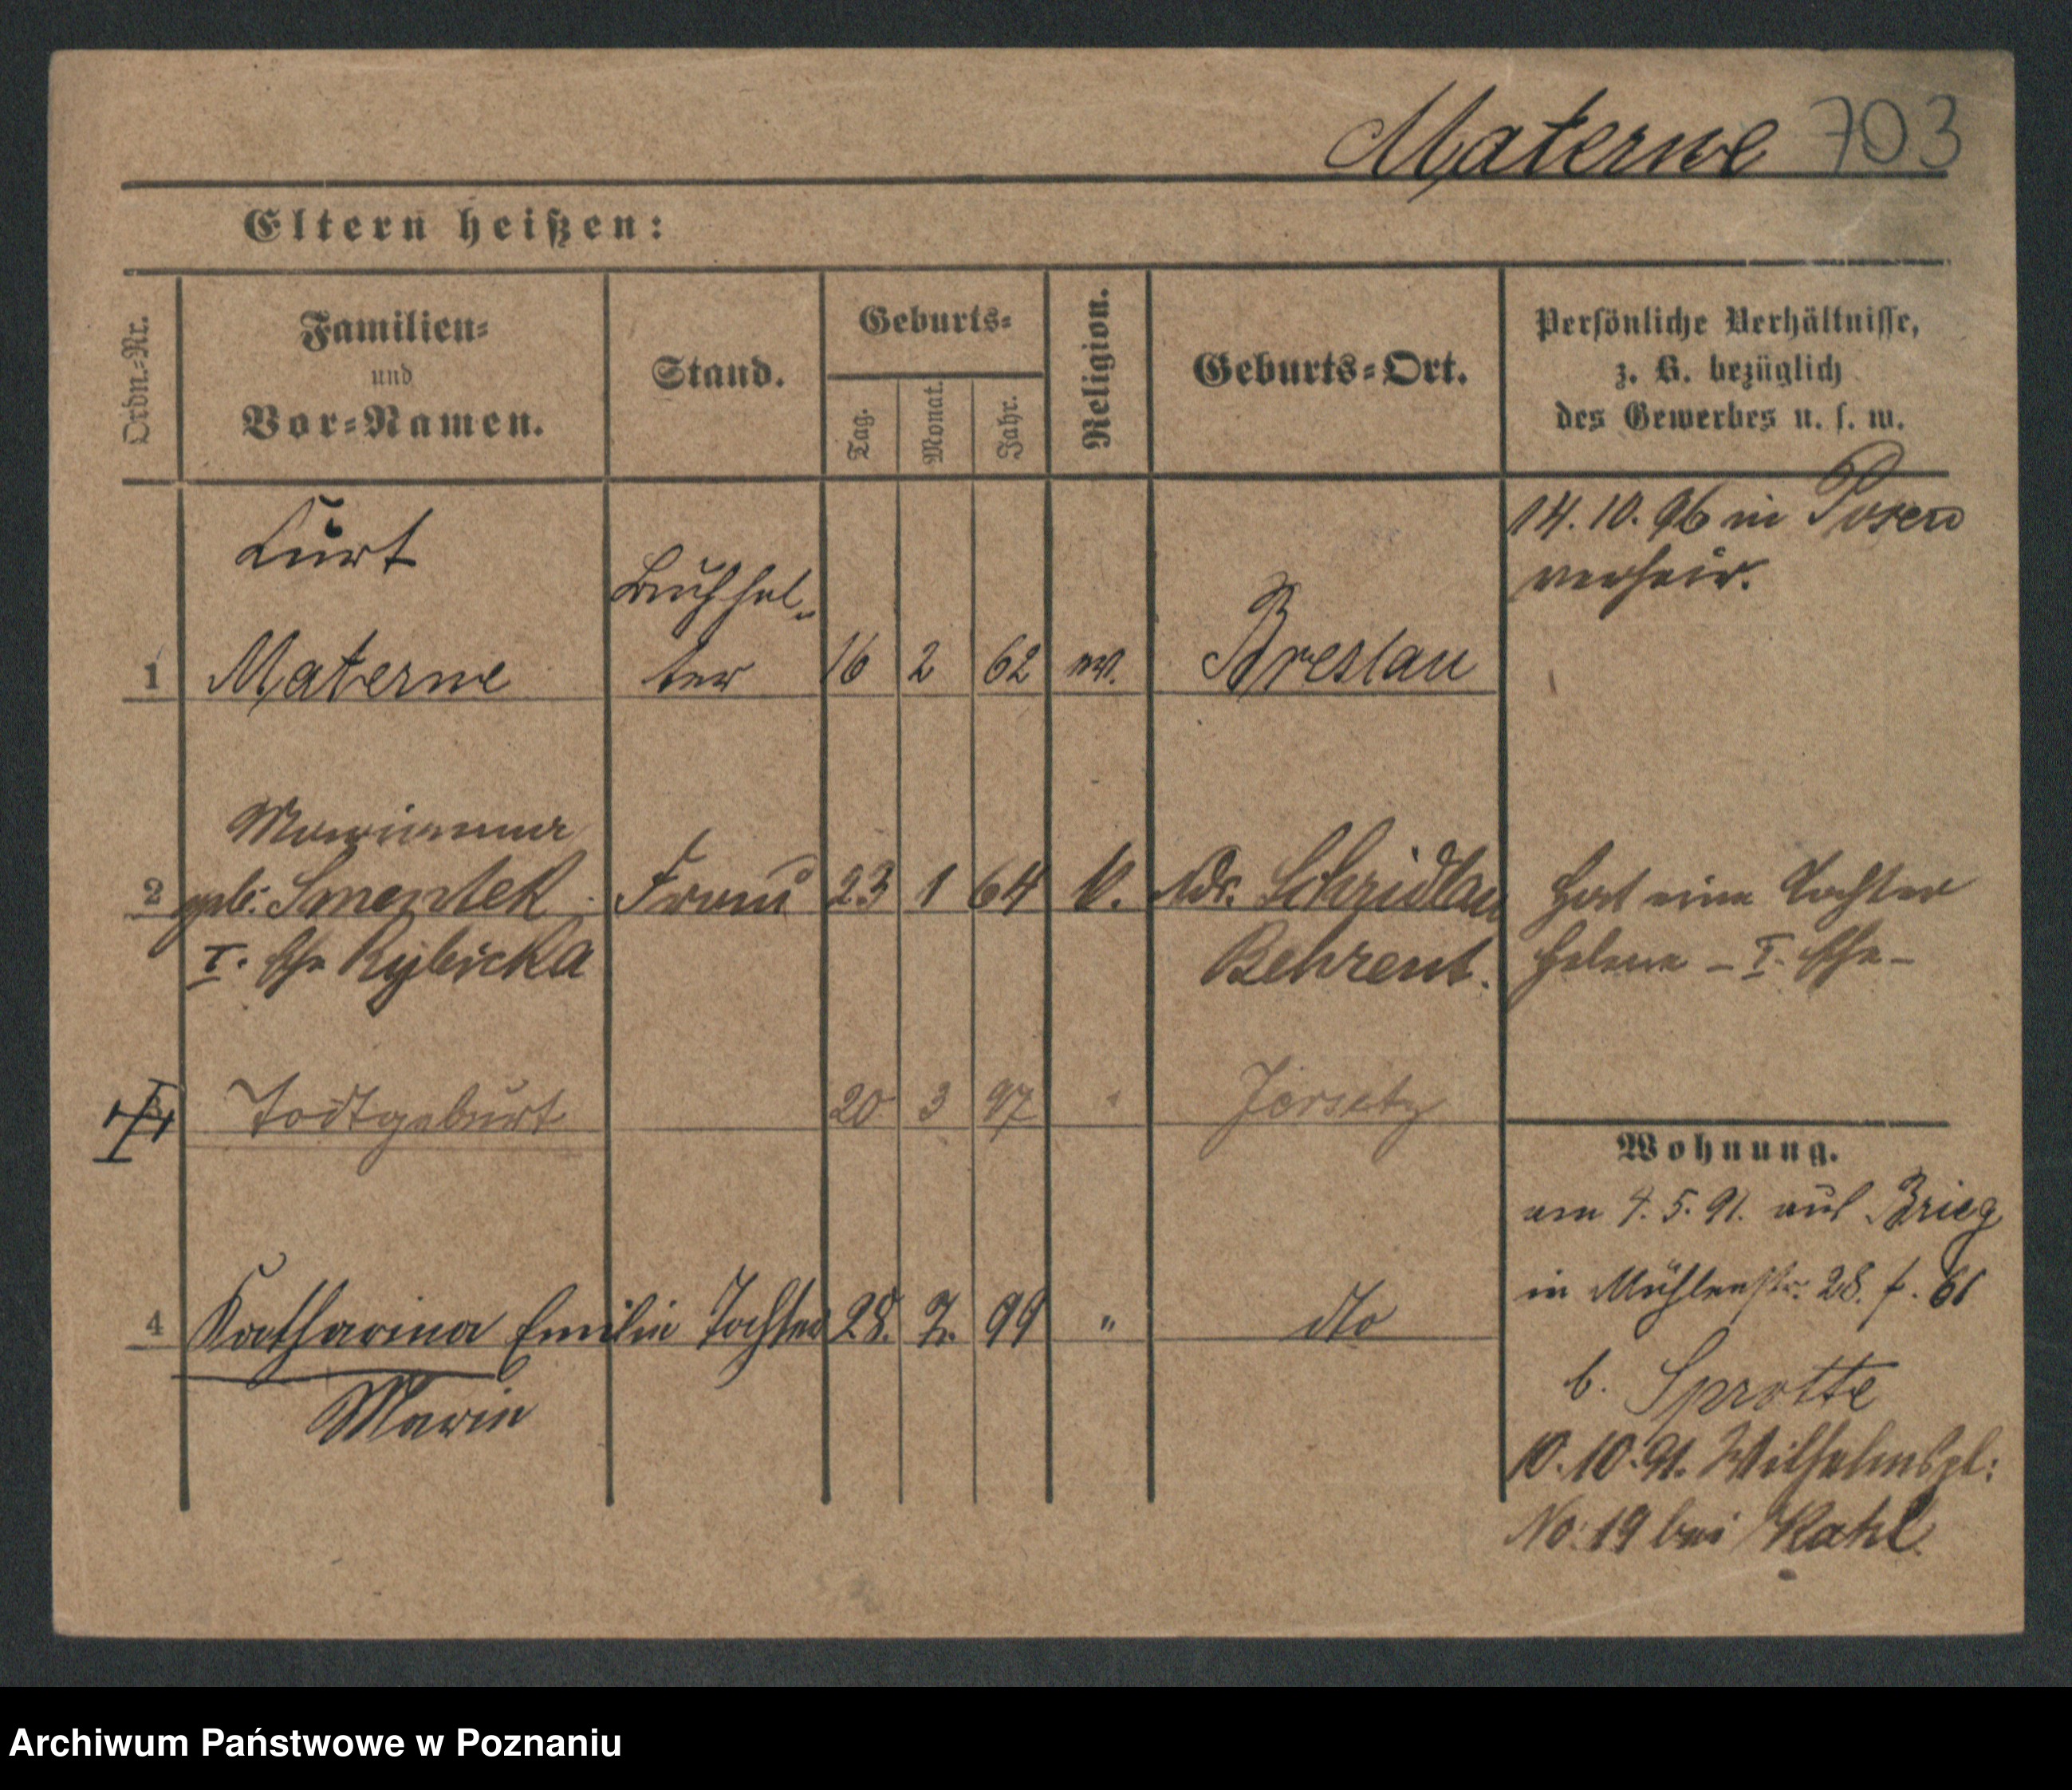 Materne 703
Eltern heißen:
Ordn.-Nr.
Familien-
und
Vor-Namen.
Stand.
Geburts-
Tag.
Monat.
Jahr.
Religion.
Geburts-Ort.
Persönliche Verhältnisse,
z. B. bezüglich
des Gewerbes u. s. w.
Kurt
Buchhal-
14. 10. 96 in Posen
verheir.
1 Materne ter 16 2 62 ev. Breslau
Marianna
2 geb. Smentek Frau 23 1 64 k. Ndr. Schridlau Hat eine Tochter
I. Ehe Rybicka Behrent. Helene - I. Ehe -
Todtgeburt 20 3 97 " Jersetz
Wohnung.
am 4. 5. 91. aus Brieg
in Mühlenstr. 28.
4 Katharina Emilie Tochter 28. 7. 99 " dto
Marie
b. Sprotte
10. 10. 91. Wilhelmspl:
No: 19 bei Kahl.
Archiwum Państwowe w Poznaniu